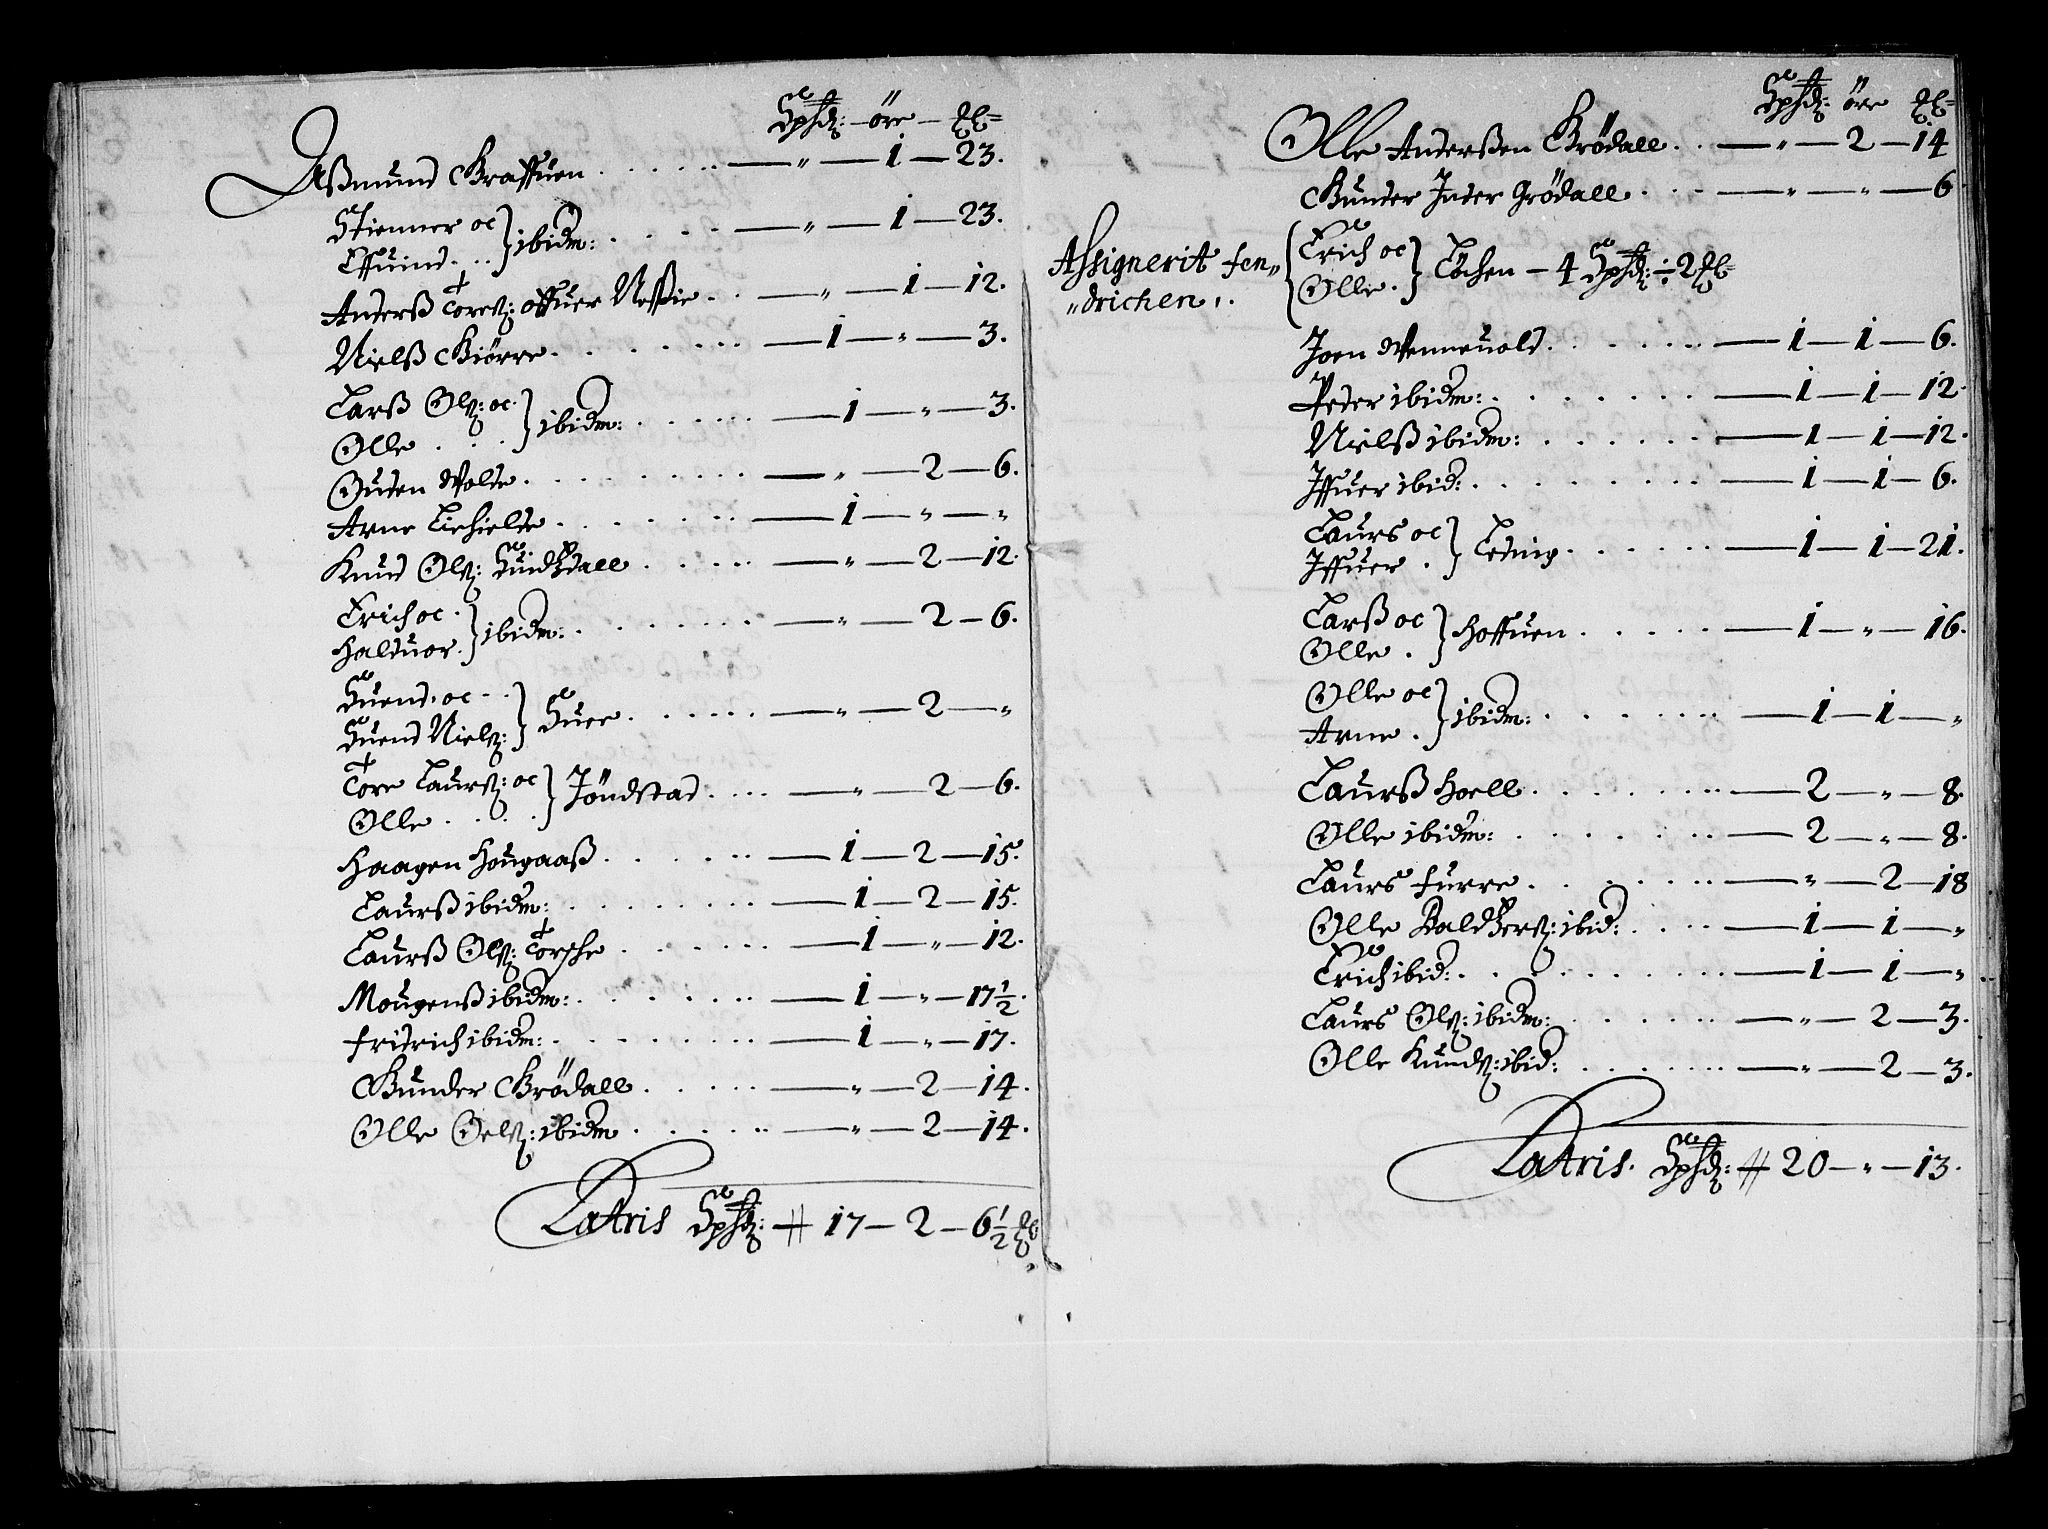 Spdr: – öre – sk=
Aßmund Graffuen . . . . . . — " — 1 — 23.
Stienner oc
Effuind . . } ibidm: . . . . . — " — 1 — 23.
Anderß Toreß: offuer Neßie . . — " — 1 — 12.
Nielß Giörre . . . . . . — 1 — " — 3.
Larß Olß: oc
Olle . . . } ibidm: . . . . . . — 1 — " — 3.
Guden Wolde . . . . . . — " — 2 — 6.
Arne Liehielde . . . . . . — 1 — " — "
Knud Olß: Sundßdall . . . . . — " — 2 — 12.
Erich oc .
Halduor . } ibidm: . . . . . . — " — 2 — 6.
Suend: oc . .
Suend Nielß: } Suee . . . . . . — " — 2 — "
Tore Laurß: oc
Olle . . . . } Jöndstad . . . . — " — 2 — 6.
Haagen Hougaaß . . . . . — 1 — 2 — 15.
Laurß ibidm: . . . . . . . — 1 — 2 — 15.
Laurß Olß: Torsche . . . . . — 1 — " — 12.
Mougenß ibidm: . . . . . . — 1 — " — 17½.
Fridrich ibidm: . . . . . . — 1 — " — 17.
Gunder Grödall . . . . . — " — 2 — 14.
Olle Oelß: ibidm . . . . . — " — 2 — 14.
Latris Spdr: # 17 — 2 — 6½ sk
Spdr: öre sk=
Olle Anderßen Grödall . . — " — 2 — 14
Gunder Inder Grödall . . . — " — " — 6
Assignerit fen"
"drichen, .
{ Erich oc
Olle . } Löchen – 4 Spdr: ÷ 2 sk=
Joen Wenneuold . . . . . . — 1 — 1 — 6.
Peder ibidm: . . . . . . . — 1 — 1 — 12.
Nielß ibidm: . . . . . . . — 1 — 1 — 12.
Iffuer ibid: . . . . . . . — 1 — 1 — 6.
Laurs oc
Iffuer . } Leding . . . . . . — 1 — 1 — 21.
Larß oc
Olle . } Hoffuen . . . . . — 1 — " — 16.
Olle oc
Arne . } ibidm: . . . . . . — 1 — 1 — "
Laurß Hoell . . . . . . . — 2 — " — 8.
Olle ibidm: . . . . . . . — 2 — " — 8.
Laurs Furre . . . . . . — " — 2 — 18
Olle Baldßerß: ibid: . . . . — 1 — 1 — "
Erich ibid: . . . . . . . — 1 — 1 — "
Laurs Olß: ibidm: . . . . . — " — 2 — 3.
Olle Knudß: ibid: . . . . . — " — 2 — 3.
Latris. Spdr: # 20 — " — 13.